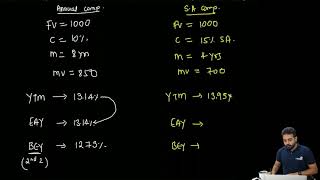 Annual comp.
FV = 1000
C = 10%
m = 8 yrs
mv = 850
YTM → 13.14%
EAY → 13.14%
BEY → 12.73%
(2nd 2)
S.A comp.
FV = 1000
C = 15% SA.
m = 4 yrs
mv = 700
YTM → 13.95%
EAY →
BEY →